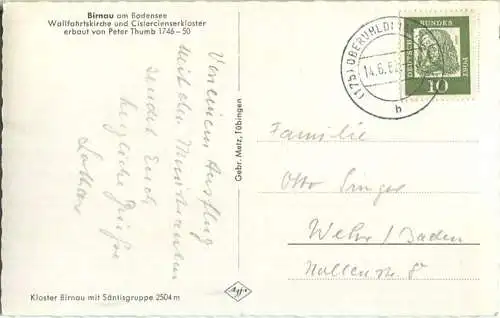 Birnau am Bodensee
Wallfahrtskirche und Cistercienserkloster
erbaut von Peter Thumb 1746–50
Von einem Ausflug
mit den Ministranten
sendet Euch
herzliche Grüße
Lothar
Gebr. Metz, Tübingen
Kloster Birnau mit Säntisgruppe 2504 m
Agfa
(17b) OBERUHLDI
14.6.62
b
DEUTSCHE BUNDES POST
10
Familie
Otto Singer
Wehr / Baden